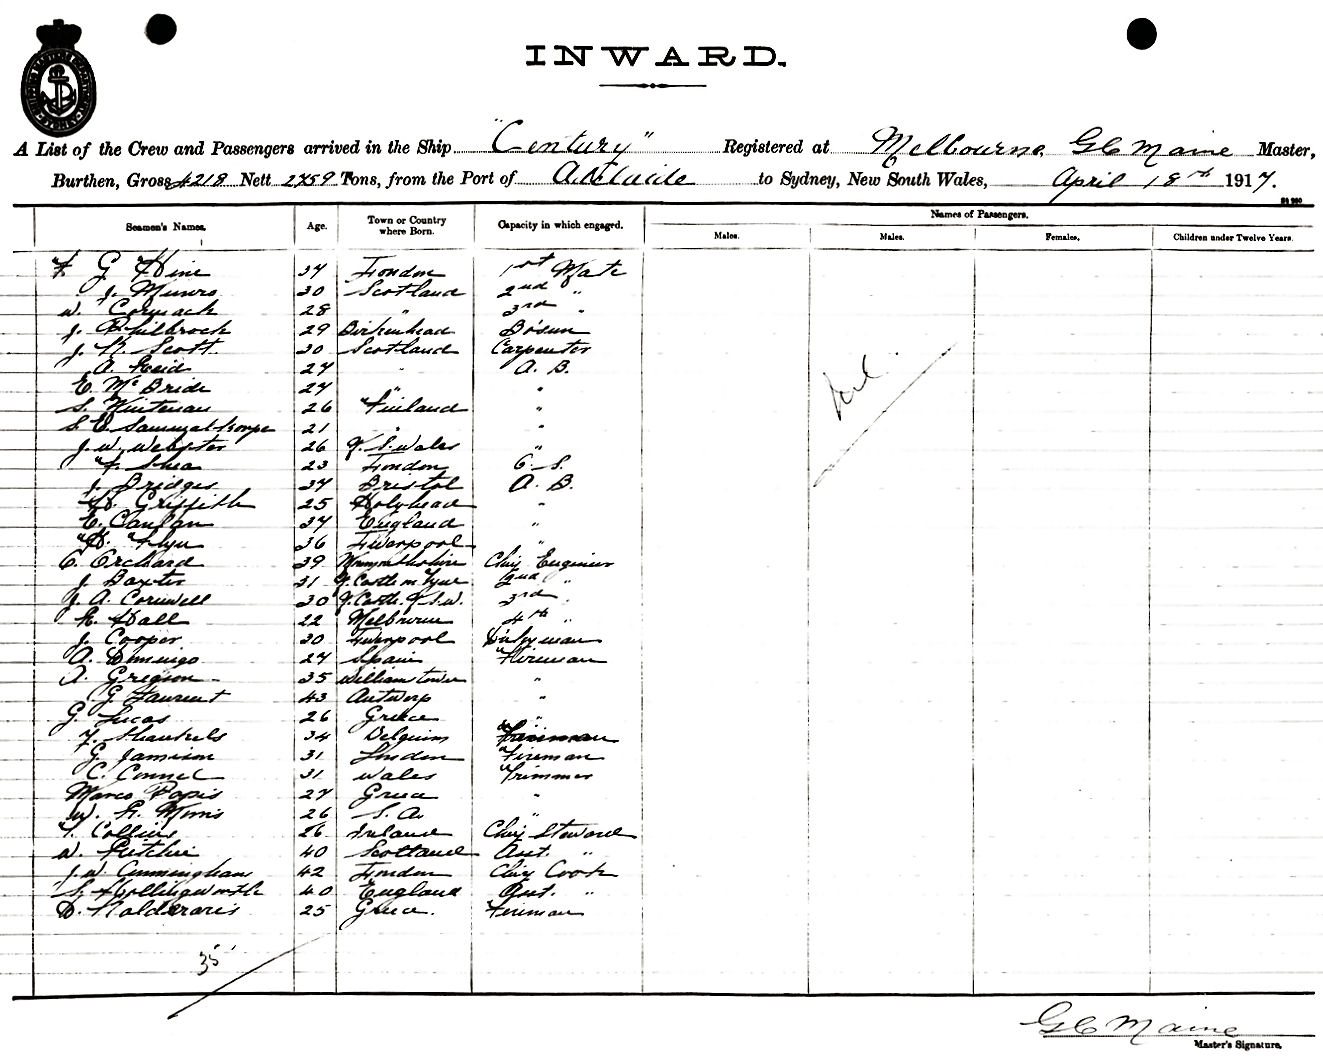 INWARD.
A List of the Crew and Passengers arrived in the Ship "Century" Registered at Melbourne G C Maine Master,
Burthen, Gross 4218 Nett 2459 Tons, from the Port of Adelaide to Sydney, New South Wales, April 18th 1917.
Seamen's Names. Age. Town or Country where Born. Capacity in which engaged. Names of Passengers.
Males. Males. Females. Children under Twelve Years.
F. G. Hine 34 London 1st Mate
J. Munro 30 Scotland 2nd "
W. Cormack 28 " 3rd "
J. Philbrock 29 Birkenhead Bosun
J. R. Scott 30 Scotland Carpenter
A. Reid 24 " A. B.
E. McBride 24 " "
S. Wintenau 26 Finland "
S. E. 21 " "
J. W. Webster 26 N. S. Wales "
F. Shea 23 London O. S.
J. Bridges 34 Bristol A. B.
H. Griffith 25 Holyhead "
E. Canlan 34 England "
H. Flyn 36 Liverpool "
C. Orchard 39 Monmouthshire Chief Engineer
J. Baxter 31 N. Castle on Tyne 2nd "
J. A. Cornwell 30 N. Castle. N. S. W. 3rd "
R. Hall 22 Melbourne 4th "
J. Cooper 30 Liverpool
O. Domingo 24 Spain Fireman
A. Gregson 35 Williamstown "
G. Laurent 43 Antwerp "
G. Lucas 26 Greece "
F. 34 Belgium
G. Jamison 31 London Fireman
C. Connel 31 Wales Trimmer
Marco Papis 24 Greece "
W. H. Morris 26 S. A. "
T. Collins 26 Ireland Chief Steward
W. Ritchie 40 Scotland Asst. "
J. W. Cunningham 42 London Chief Cook
S. Hollingworth 40 England Asst. "
D. Kalderaris 25 Greece. Fireman
Nil.
35
G C Maine
Master's Signature.